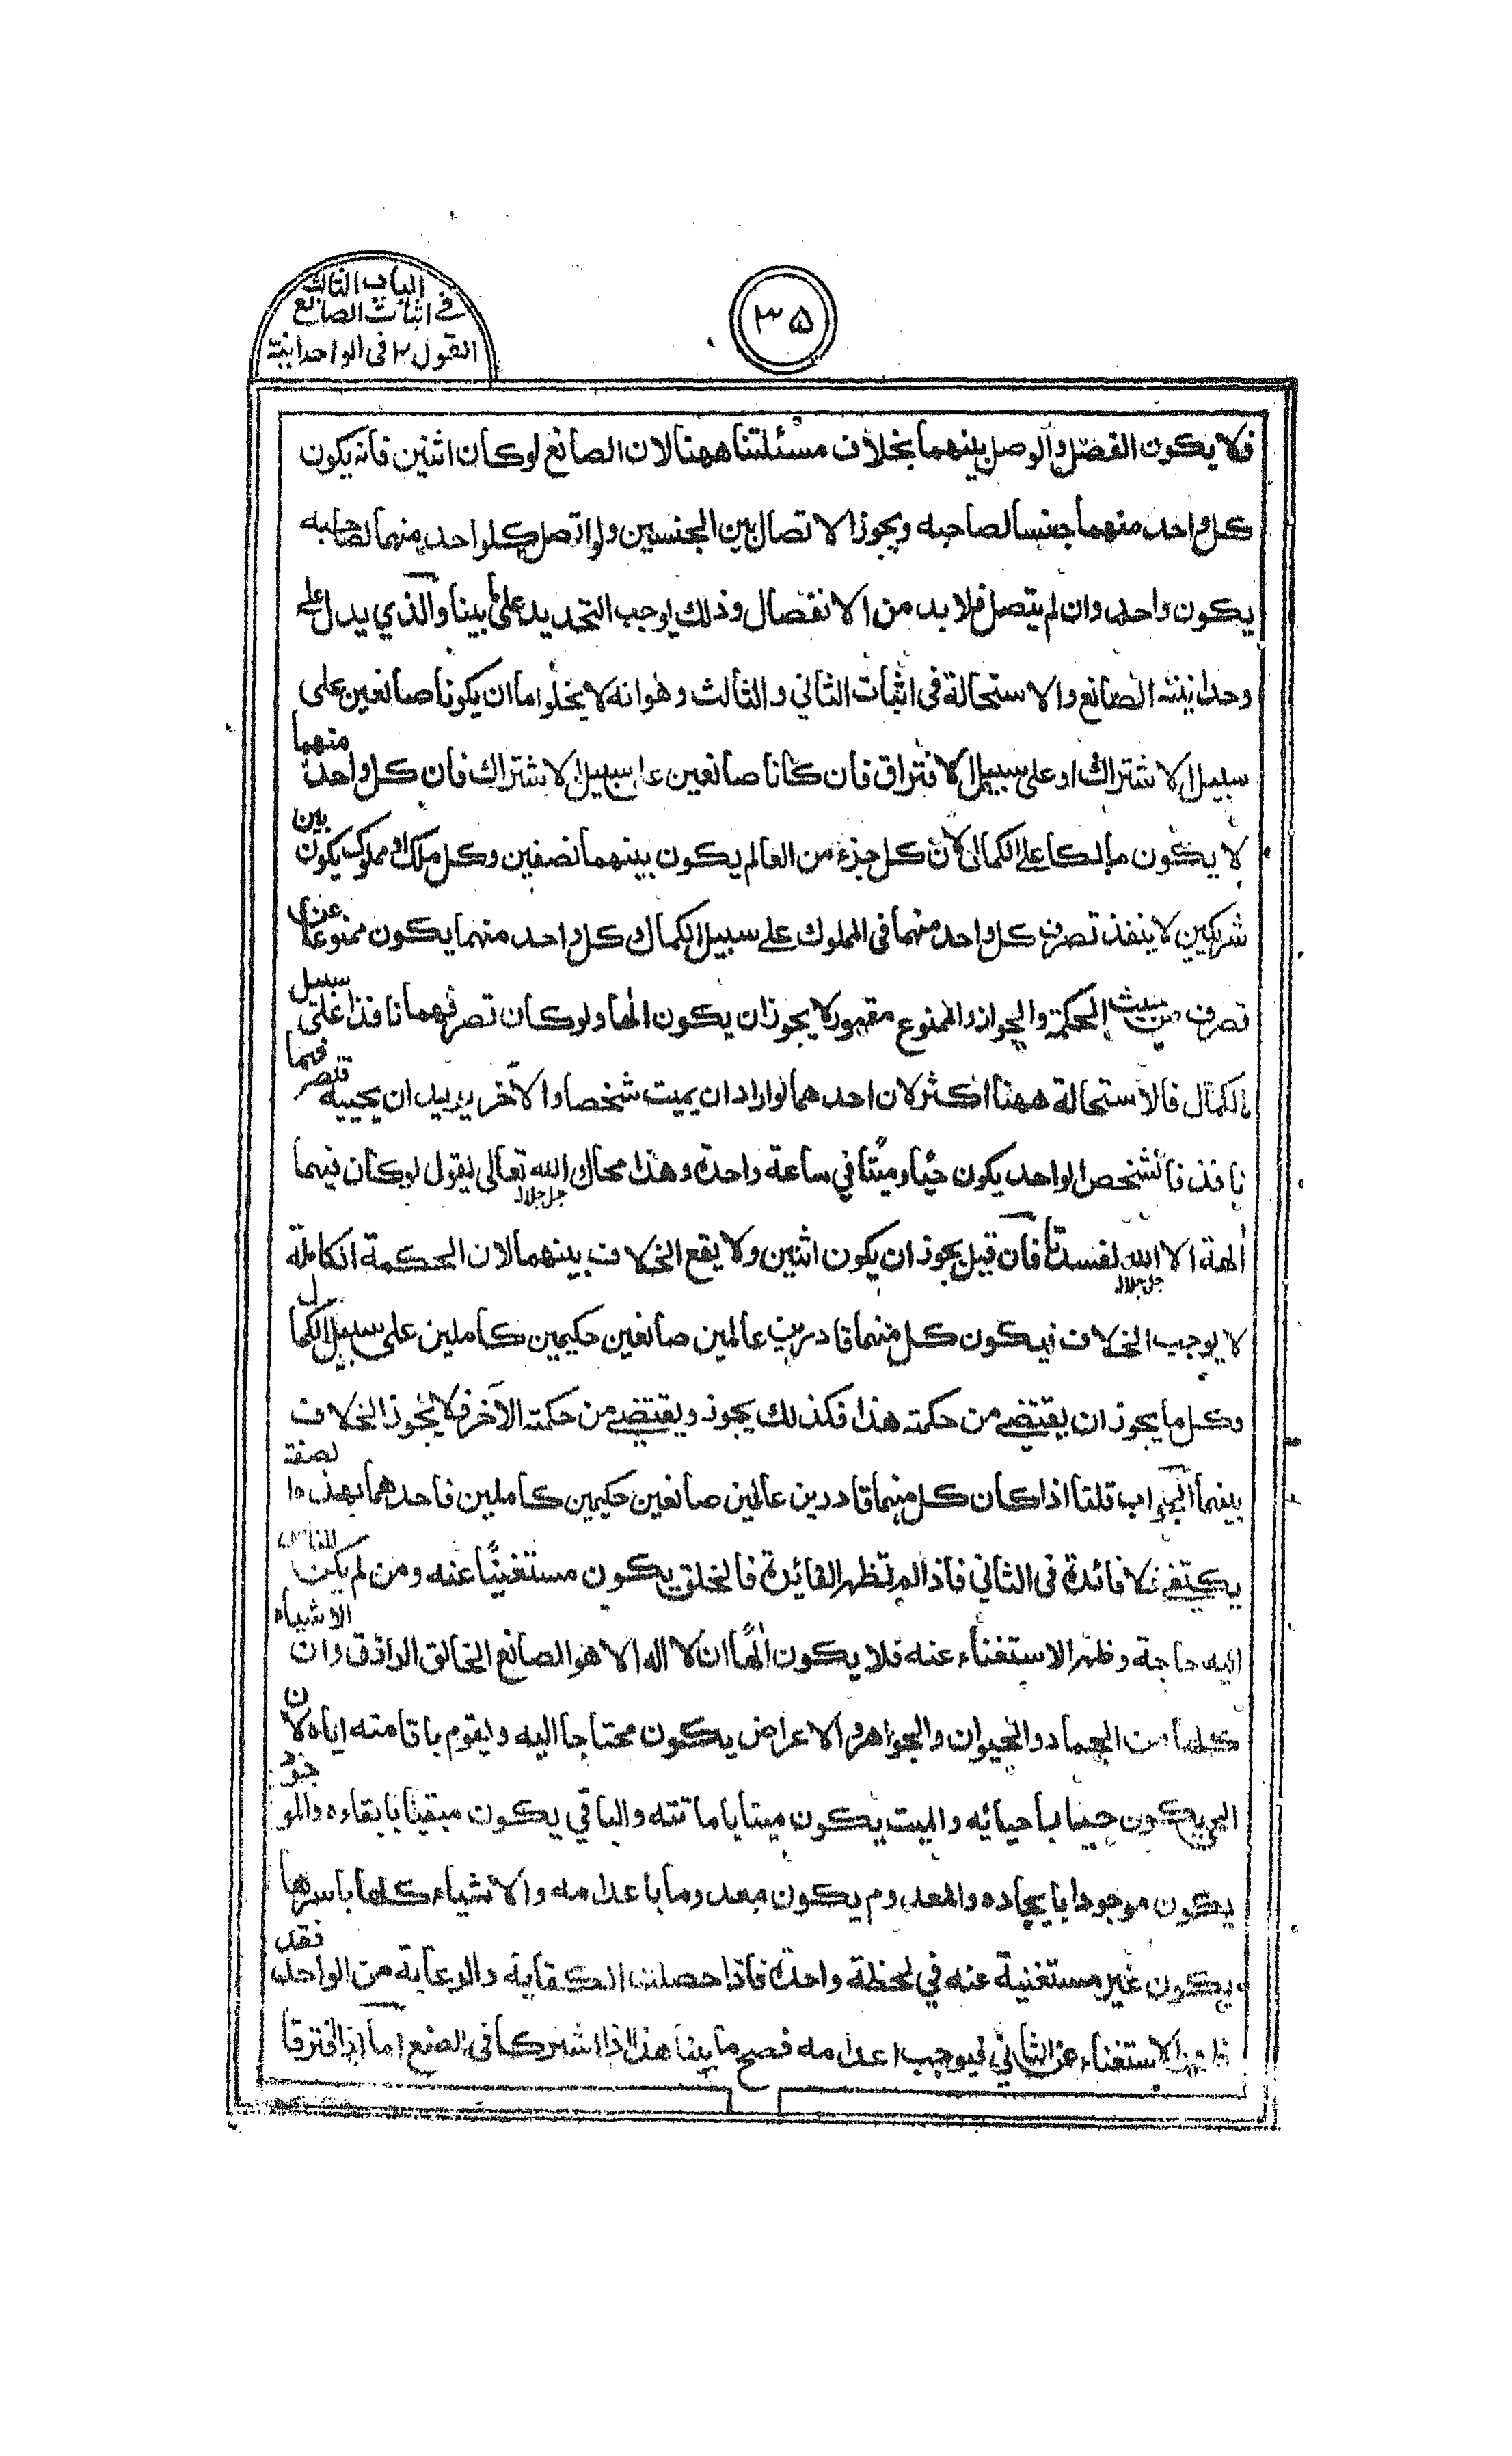 الباب الثالث
في اثبات الصانع
القول ٢ في الواحدانية
٣٥
فلا يكون الفصل والوصل بينهما بخلاف مسئلتنا ههنا لان الصانع لو كان اثنين فانه يكون
كل واحد منهما جنسا لصاحبه ويجوز الاتصال بين الجنسين ولو اتصل كلواحد منهما لصاحبه
يكون واحدا وان لم يتصل فلا بد من الانفصال وذلك يوجب التحديد على ما بينا والذي يدل على
وحدانيته الصانع والاستحالة في اثبات الثاني والثالث وهو انه لا يخلوا اما ان يكونا صانعين على
سبيل الاشتراك او على سبيل الافتراق فان كانا صانعين على سبيل الاشتراك فان كل واحد منهما
لا يكون مالكا على الكمال لان كل جزء من العالم يكون بينهما نصفين وكل ملك او مملوك يكون بين
شريكين لا ينفذ تصرف كل واحد منهما في المملوك على سبيل الكمال وكل واحد منهما يكون ممنوعا عن
تصرف من حيث الحكمة والجواز والممنوع مقهور لا يجوز ان يكون الها ولو كان تصرفهما نافذا على سبيل
الكمال فالاستحالة ههنا اكثر لان احدهما لو اراد ان يميت شخصا والآخر يريد ان يحييه فتصرفهما
نافذ فالشخص الواحد يكون حيا وميتا في ساعة واحدة وهذا محال والله تعالى جل جلاله يقول لو كان فيهما
الهة الا الله جل جلاله لفسدتا فان قيل يجوز ان يكون اثنين ولا يقع الخلاف بينهما لان الحكمة الكاملة
لا يوجب الخلاف فيكون كل منهما قادرين عالمين صانعين حكيمين كاملين على سبيل الكمال
وكل ما يجوز ان يقتضي من حكمته هذا فكذلك يجوز ويقتضي من حكمته الآخر فلا يجوز الخلاف
بينهما الجواب قلنا اذا كان كل منهما قادرين عالمين صانعين حكيمين كاملين فاحدهما بهذه الصفة
يكتفي فلا فائدة في الثاني فاذا لم تظهر الفائدة فالخلق يكون مستغنيًا عنه ومن لم يكن للناس
اليه حاجة وظهر الاستغناء عنه فلا يكون الهًا ان لا اله الا هو الصانع الخالق الرازق وان الاشياء
كلها من الجماد والحيوان والجواهر والاعراض يكون محتاجا اليه ويقوم باقامته اياه لان
الحي يكون حيا باحيائه والميت يكون ميتا باماتته والباقي يكون مبقيا بابقاءه والموجود
يكون موجودا بايجاده والمعدوم يكون معدوما باعدامه والاشياء كلها باسرها
ويكون غير مستغنية عنه في لحظة واحدة فاذا حصلت الكفاية والرعاية من الواحد فقد
ظهر الاستغناء عن الثاني فيوجب اعدامه فصح ما بينا هذا اذا اشتركا في الصنع اما اذا افترقا